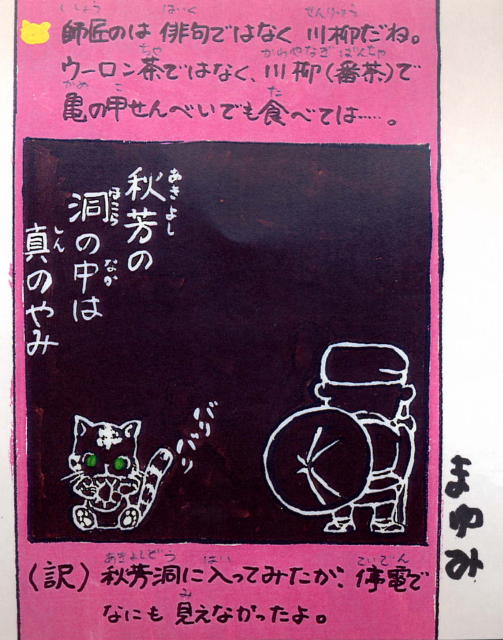 師匠のは俳句ではなく川柳だね。
ウーロン茶ではなく、川柳(番茶)で
亀の甲せんべいでも食べては……。
秋芳の
洞の中は
真のやみ
バリバリ
(訳)秋芳洞に入ってみたが、停電で
なにも見えなかったよ。
まゆみ